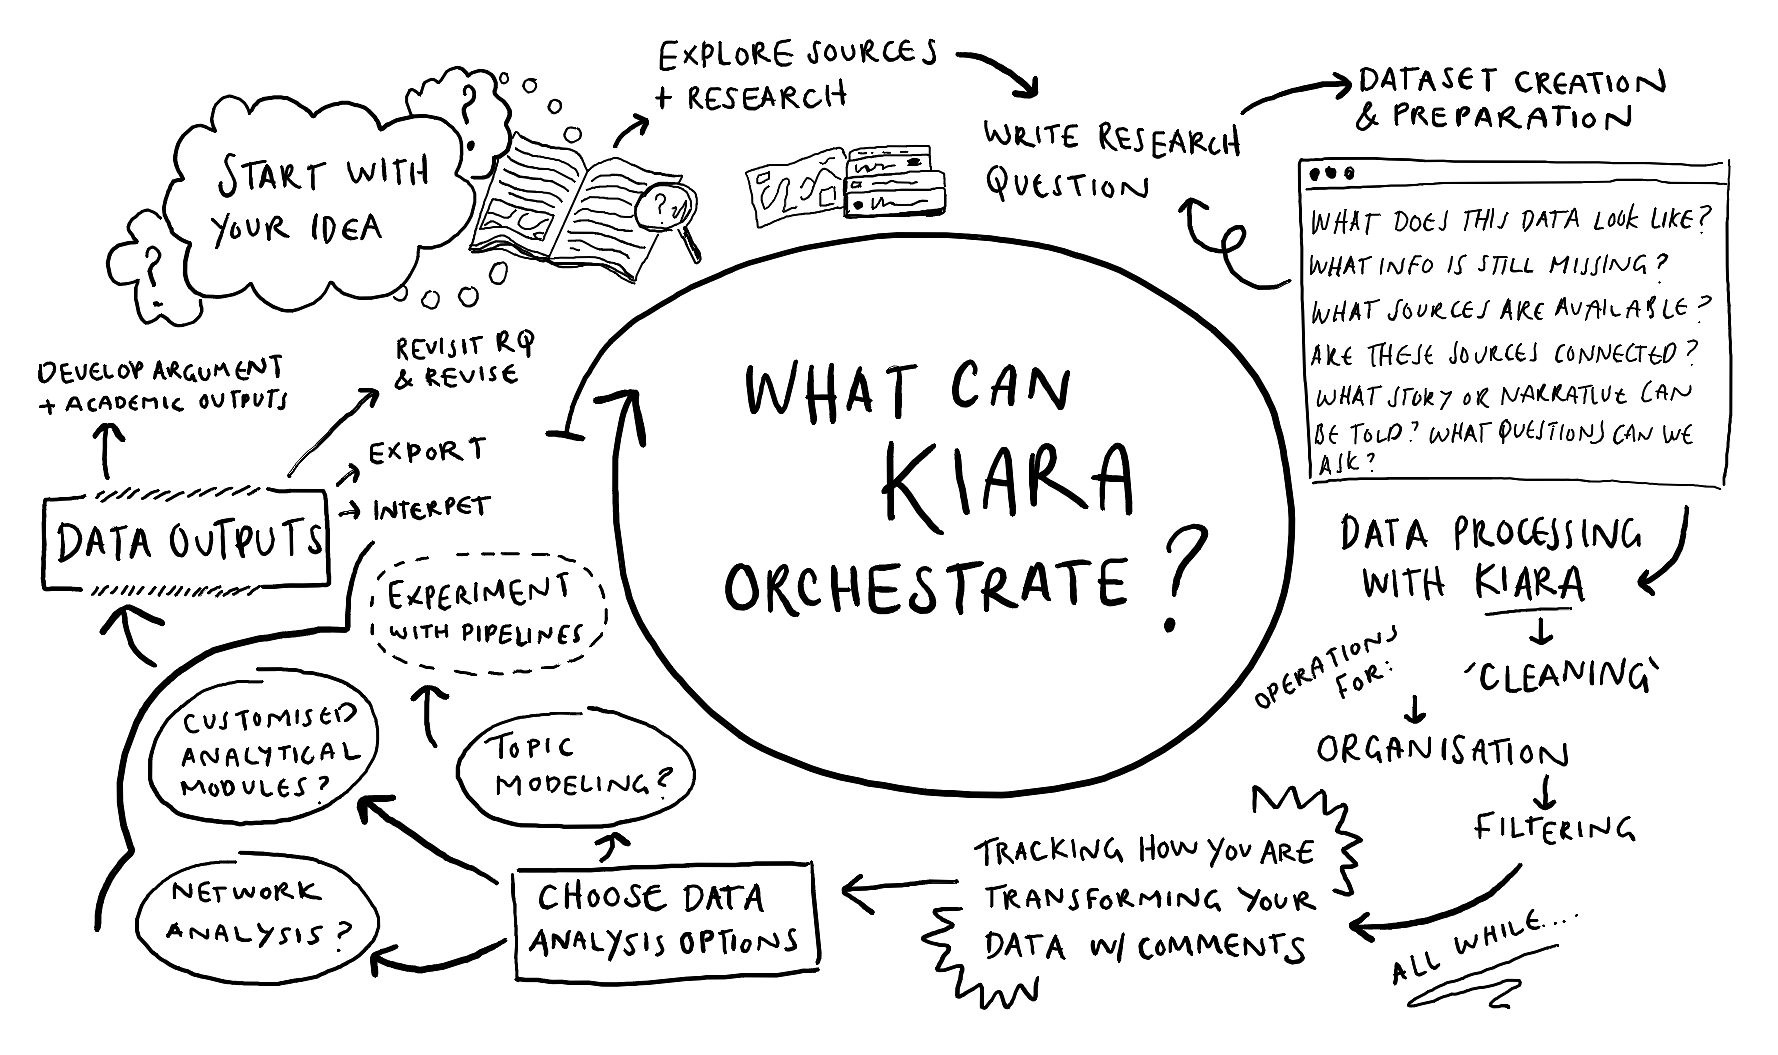 START WITH
YOUR IDEA
?
?
?
EXPLORE SOURCES
+ RESEARCH
WRITE RESEARCH
QUESTION
DATASET CREATION
& PREPARATION
WHAT DOES THIS DATA LOOK LIKE?
WHAT INFO IS STILL MISSING?
WHAT SOURCES ARE AVAILABLE?
ARE THESE SOURCES CONNECTED?
WHAT STORY OR NARRATIVE CAN
BE TOLD? WHAT QUESTIONS CAN WE
ASK?
DATA PROCESSING
WITH KIARA
OPERATIONS
FOR:
'CLEANING'
ORGANISATION
FILTERING
ALL WHILE....
TRACKING HOW YOU ARE
TRANSFORMING YOUR
DATA W/ COMMENTS
CHOOSE DATA
ANALYSIS OPTIONS
TOPIC
MODELING?
CUSTOMISED
ANALYTICAL
MODULES?
NETWORK
ANALYSIS?
EXPERIMENT
WITH PIPELINES
DATA OUTPUTS
EXPORT
INTERPET
REVISIT RQ
& REVISE
DEVELOP ARGUMENT
+ ACADEMIC OUTPUTS
WHAT CAN
KIARA
ORCHESTRATE?